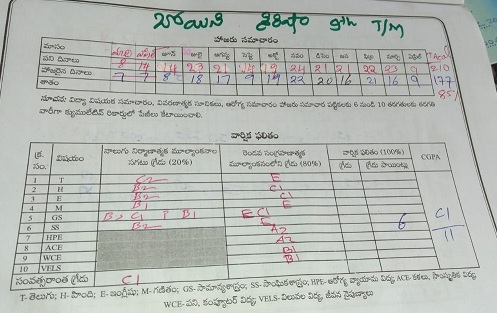 9th T/M
హాజరు సమాచారం
మాసం జూన్ జులై ఆగస్టు సెప్టె అక్టో నవం డిసెం జన ఫిబ్ర మార్చి ఏప్రిల్ Total
పని దినాలు 8 14 14 23 21 14 19 24 21 21 22 23 9 210
హాజరైన దినాలు 7 7 8 18 17 9 19 22 20 16 21 16 9 177
శాతం 85%
వార్షిక ఫలితం
క్ర. సం. విషయం నాలుగు నిర్మాణాత్మక మూల్యాంకనాల సగటు గ్రేడు (20%) రెండవ సంగ్రహణాత్మక మూల్యాంకనంలోని గ్రేడు (80%) వార్షిక ఫలితం (100%) గ్రేడు గ్రేడు పాయింట్లు CGPA
1 T C2 E
2 H B2 C1
3 E B2 C1
4 M B1 E
5 GS B2 C1 P B1 E C1
6 SS B2 E 6 C1
7 HPE A2 11
8 ACE A2
9 WCE B1
10 VELS B1
సంవత్సరాంత గ్రేడు C1
T- తెలుగు; H- హింది; E- ఇంగ్లీషు; M- గణితం; GS- సామాన్యశాస్త్రం; SS- సాంఘికశాస్త్రం; HPE- ఆరోగ్య వ్యాయామ విద్య; ACE- కళలు, సాంస్కృతిక విద్య;
WCE- పని, కంప్యూటర్ విద్య; VELS- విలువల విద్య, జీవన నైపుణ్యాలు